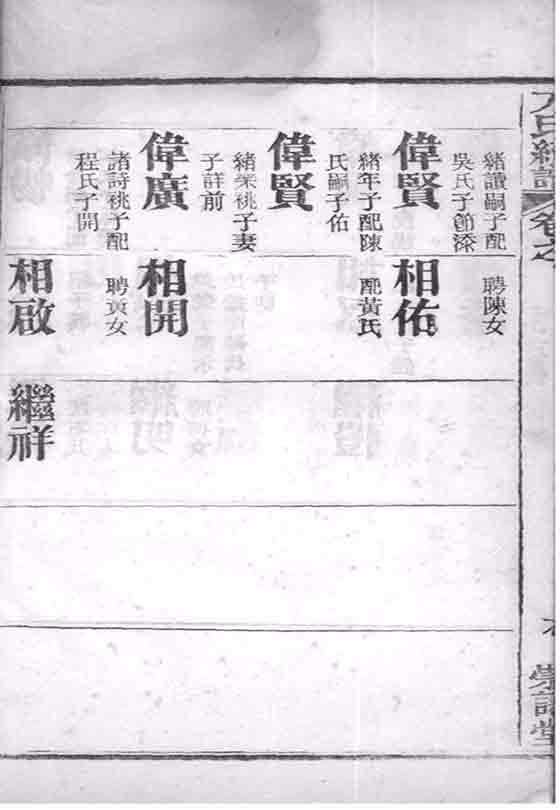 卷之
緒讚嗣子配
吳氏子節
偉賢
緒年子配陳
氏嗣子佑
偉賢
緒榮祧子妻
子詳前
偉廣
諸詩祧子配
程氏子開
聘陳女
相佑
配黃氏
相開
聘女
相啟
繼祥